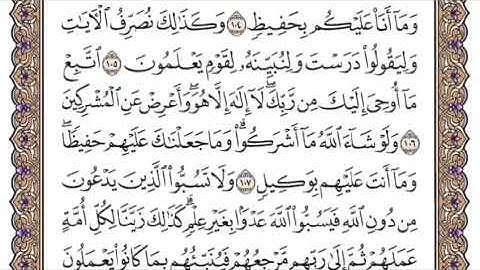 وَمَآ أَنَا۠ عَلَيْكُم بِحَفِيظٍ ۝١٠٤ وَكَذَٰلِكَ نُصَرِّفُ ٱلْأٓيَٰتِ
وَلِيَقُولُوا۟ دَرَسْتَ وَلِنُبَيِّنَهُۥ لِقَوْمٍ يَعْلَمُونَ ۝١٠٥ ٱتَّبِعْ
مَآ أُوحِىَ إِلَيْكَ مِن رَّبِّكَ ۖ لَآ إِلَٰهَ إِلَّا هُوَ ۖ وَأَعْرِضْ عَنِ ٱلْمُشْرِكِينَ
۝١٠٦ وَلَوْ شَآءَ ٱللَّهُ مَآ أَشْرَكُوا۟ ۗ وَمَا جَعَلْنَٰكَ عَلَيْهِمْ حَفِيظًا ۖ
وَمَآ أَنتَ عَلَيْهِم بِوَكِيلٍ ۝١٠٧ وَلَا تَسُبُّوا۟ ٱلَّذِينَ يَدْعُونَ
مِن دُونِ ٱللَّهِ فَيَسُبُّوا۟ ٱللَّهَ عَدْوًۢا بِغَيْرِ عِلْمٍ ۗ كَذَٰلِكَ زَيَّنَّا لِكُلِّ أُمَّةٍ
عَمَلَهُمْ ثُمَّ إِلَىٰ رَبِّهِم مَّرْجِعُهُمْ فَيُنَبِّئُهُم بِمَا كَانُوا۟ يَعْمَلُونَ